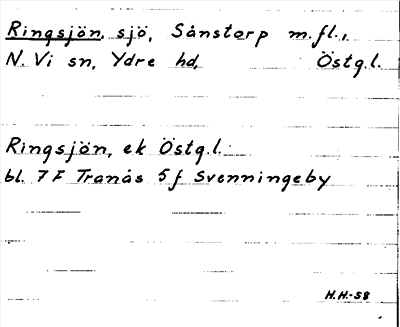 Ringsjön, sjö, Sånstorp m.fl.,
N. Vi sn, Ydre hd, Östg.l.
Ringsjön, ek Östg.l.
bl. 7F Tranås 5f Svenningeby
H.H.-58